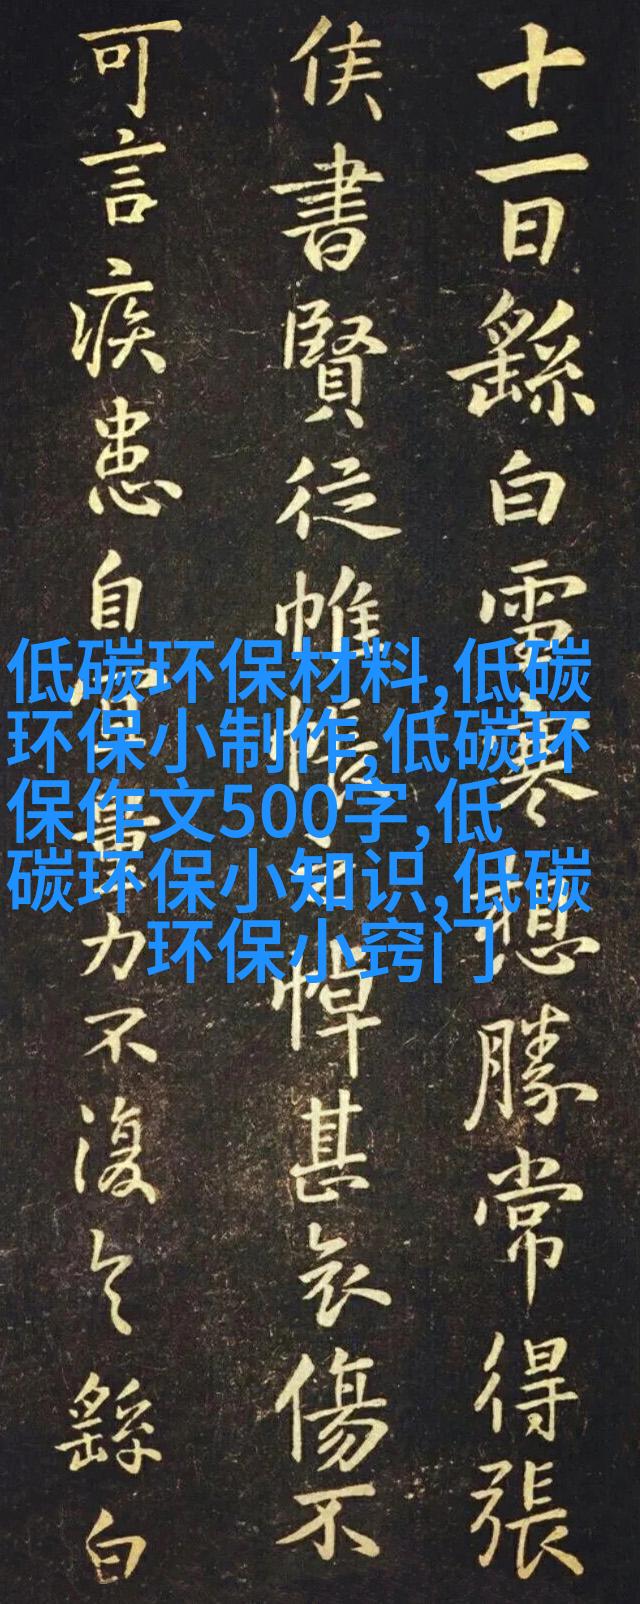 十二日繇白雪寒想勝常得張
侯書賢從帷帳之悼甚哀傷不
可言疾患自宜量力不復繇白
低碳环保材料,低碳
环保小制作,低碳环
保作文500字,低
碳环保小知识,低碳
环保小窍门